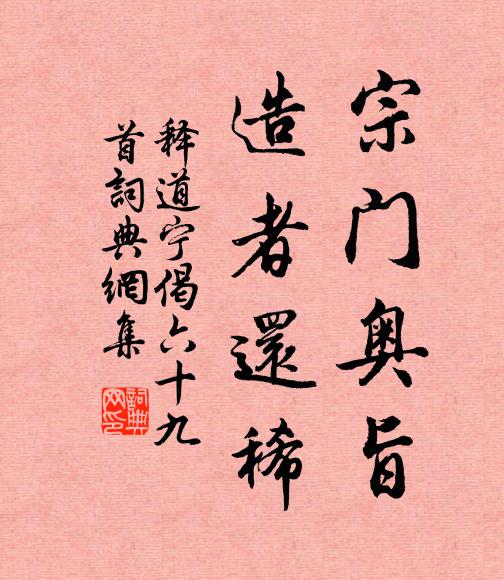 宗门奥旨
造者還稀
释道宁偈六十九
首詞典網集
詞典
网印